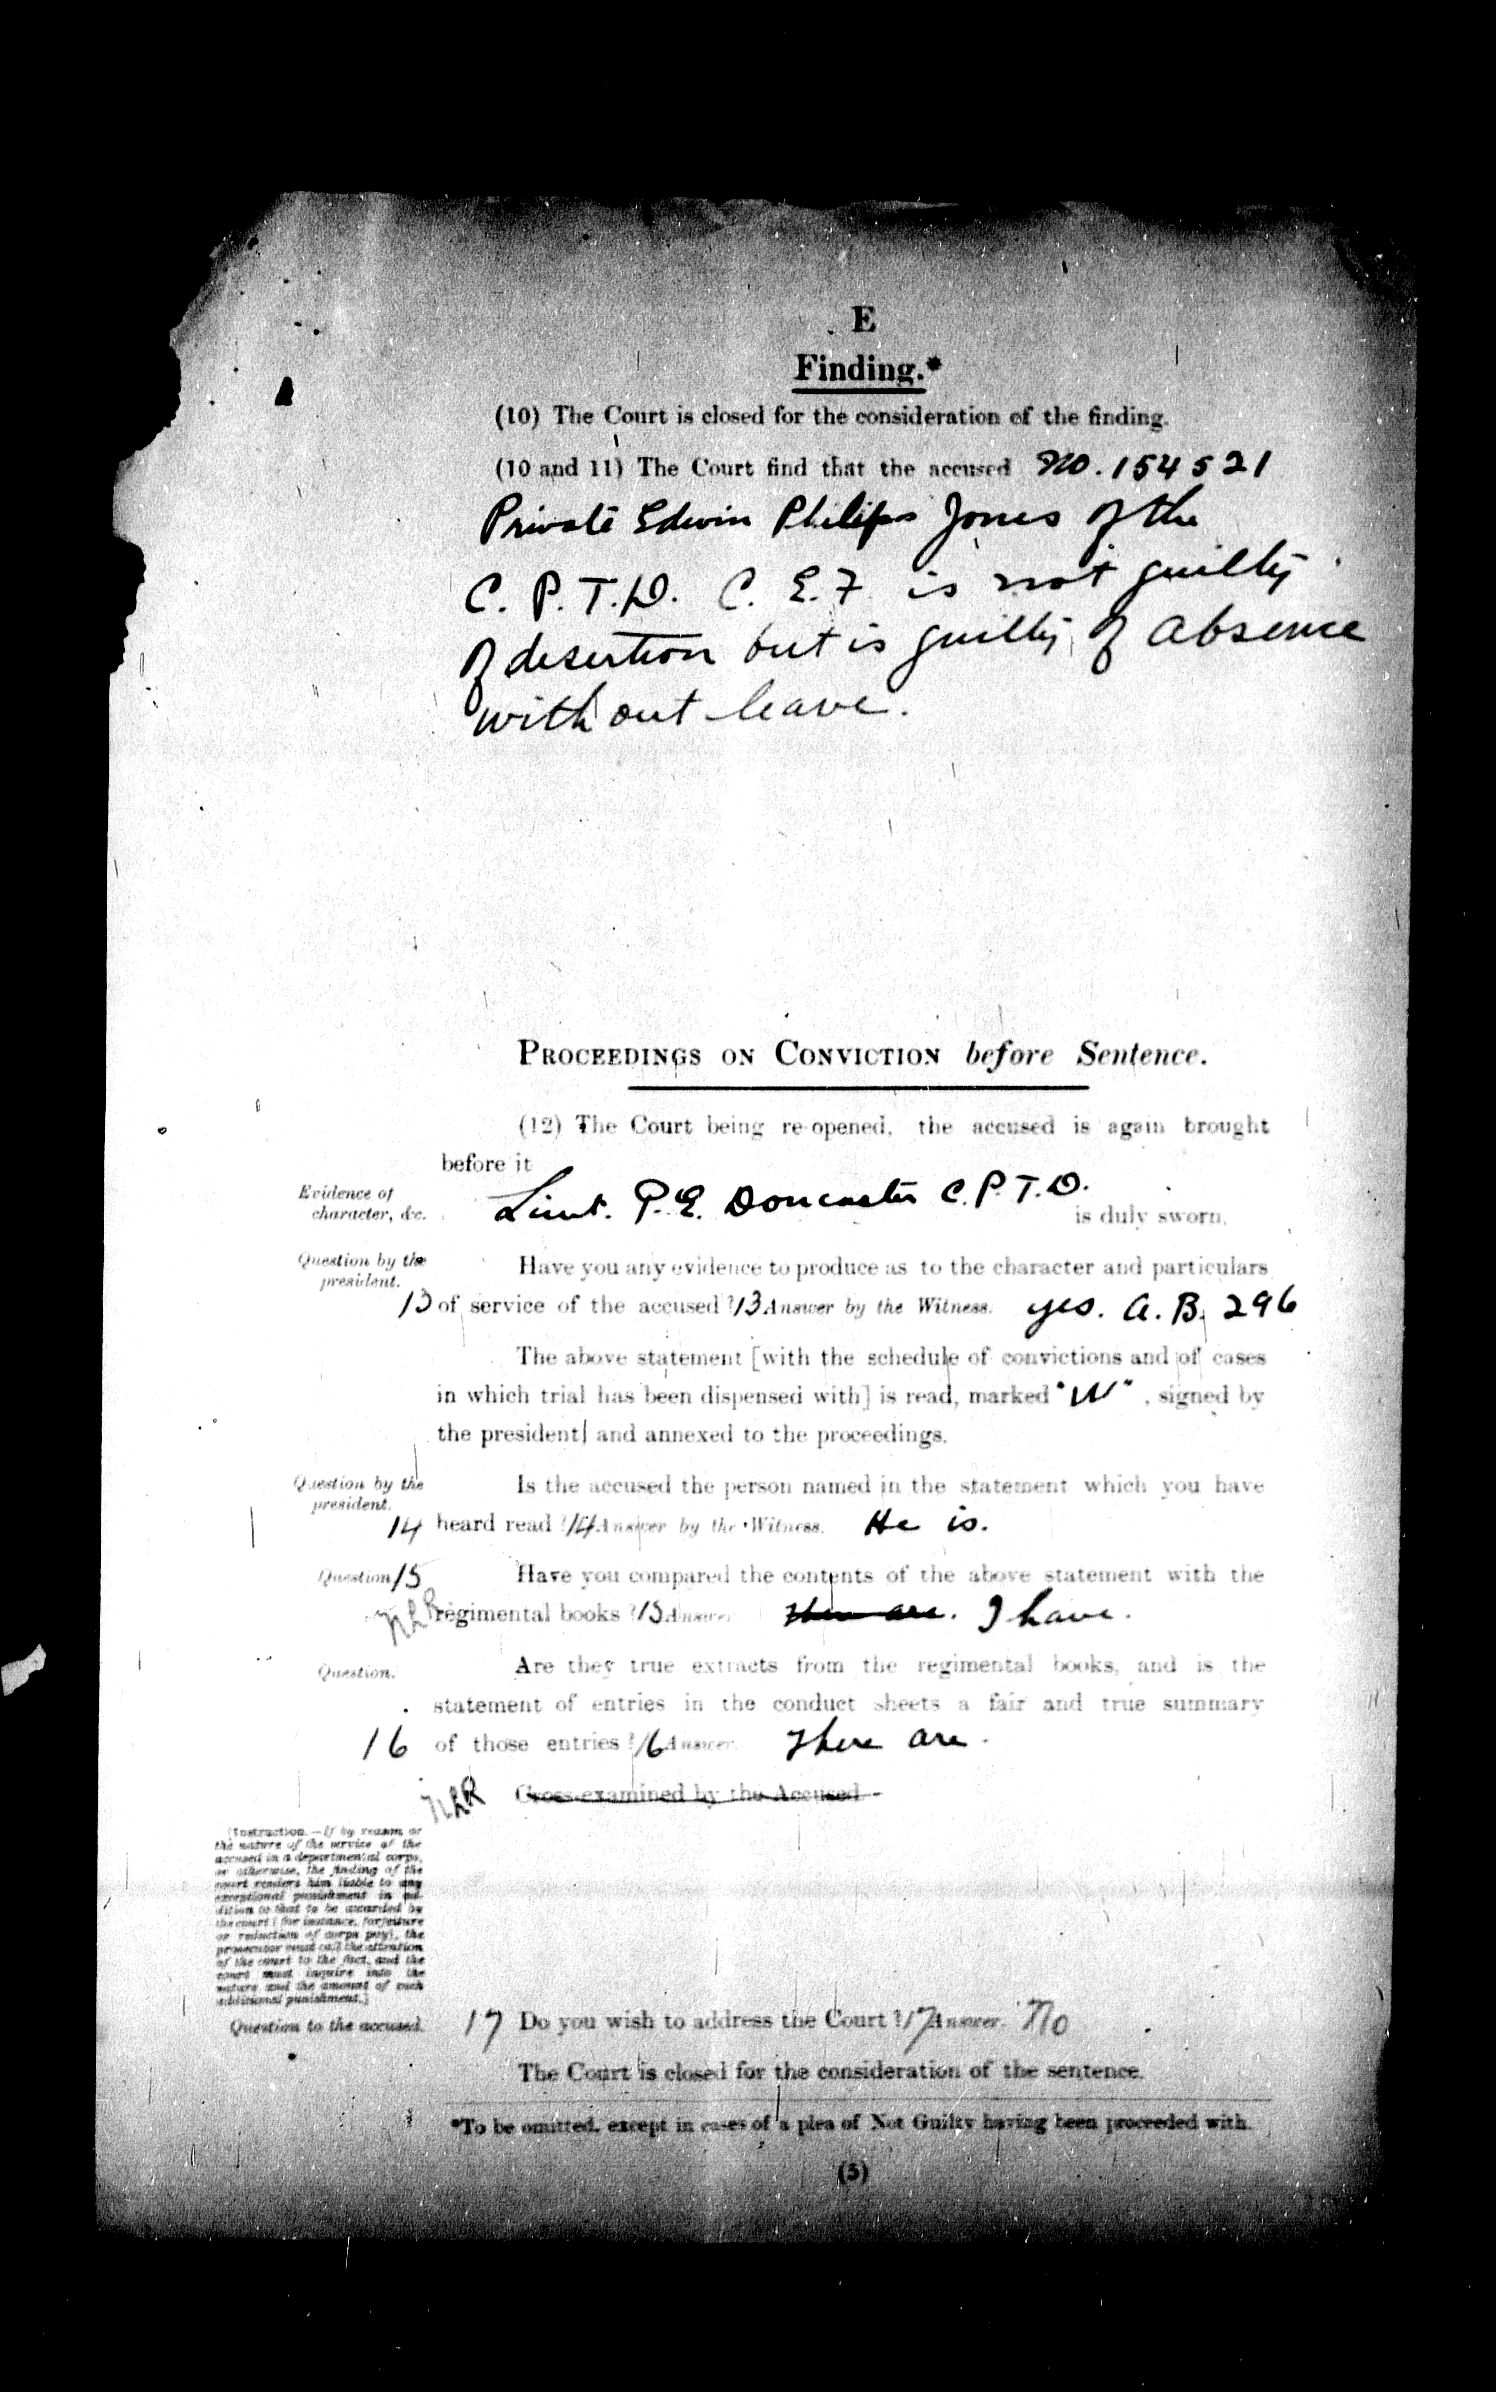 E
Finding.*
(10) The Court is closed for the consideration of the finding.
(10 and 11) The Court find that the accused No. 154521
Private Edwin Philips Jones of the
C. P. T. D. C. E. F is not guilty
of desertion but is guilty of absence
without leave.
PROCEEDINGS ON CONVICTION before Sentence.
(12) The Court being re-opened, the accused is again brought
before it
Evidence of
character, &c.
Lieut. P. E. Doncaster C. P. T. D.
is duly sworn.
Question by the
president.
Have you any evidence to produce as to the character and particulars
13 of service of the accused? 13 Answer by the Witness. yes. A. B. 296
The above statement [with the schedule of convictions and of cases
in which trial has been dispensed with] is read, marked "W", signed by
the president and annexed to the proceedings.
Question by the
president.
Is the accused the person named in the statement which you have
14 heard read? 14 Answer by the Witness. He is.
Question 15 Have you compared the contents of the above statement with the
regimental books? 15 Answer There are. I have.
Question. Are they true extracts from the regimental books, and is the
statement of entries in the conduct sheets a fair and true summary
16 of those entries? 16 Answer. There are.
Cross-examined by the Accused
[Instruction.—If by reason or
the nature of the service of the
accused in a departmental corps,
or otherwise, the finding of the
court renders him liable to any
exceptional punishment in ad-
dition to that to be awarded by
the court (for instance, forfeiture
or reduction of corps pay), the
prosecutor must call the attention
of the court to the fact, and the
court must inquire into the
nature and the amount of such
additional punishment.]
Question to the accused. 17 Do you wish to address the Court? 17 Answer. No
The Court is closed for the consideration of the sentence.
*To be omitted, except in cases of a plea of Not Guilty having been proceeded with.
(5)